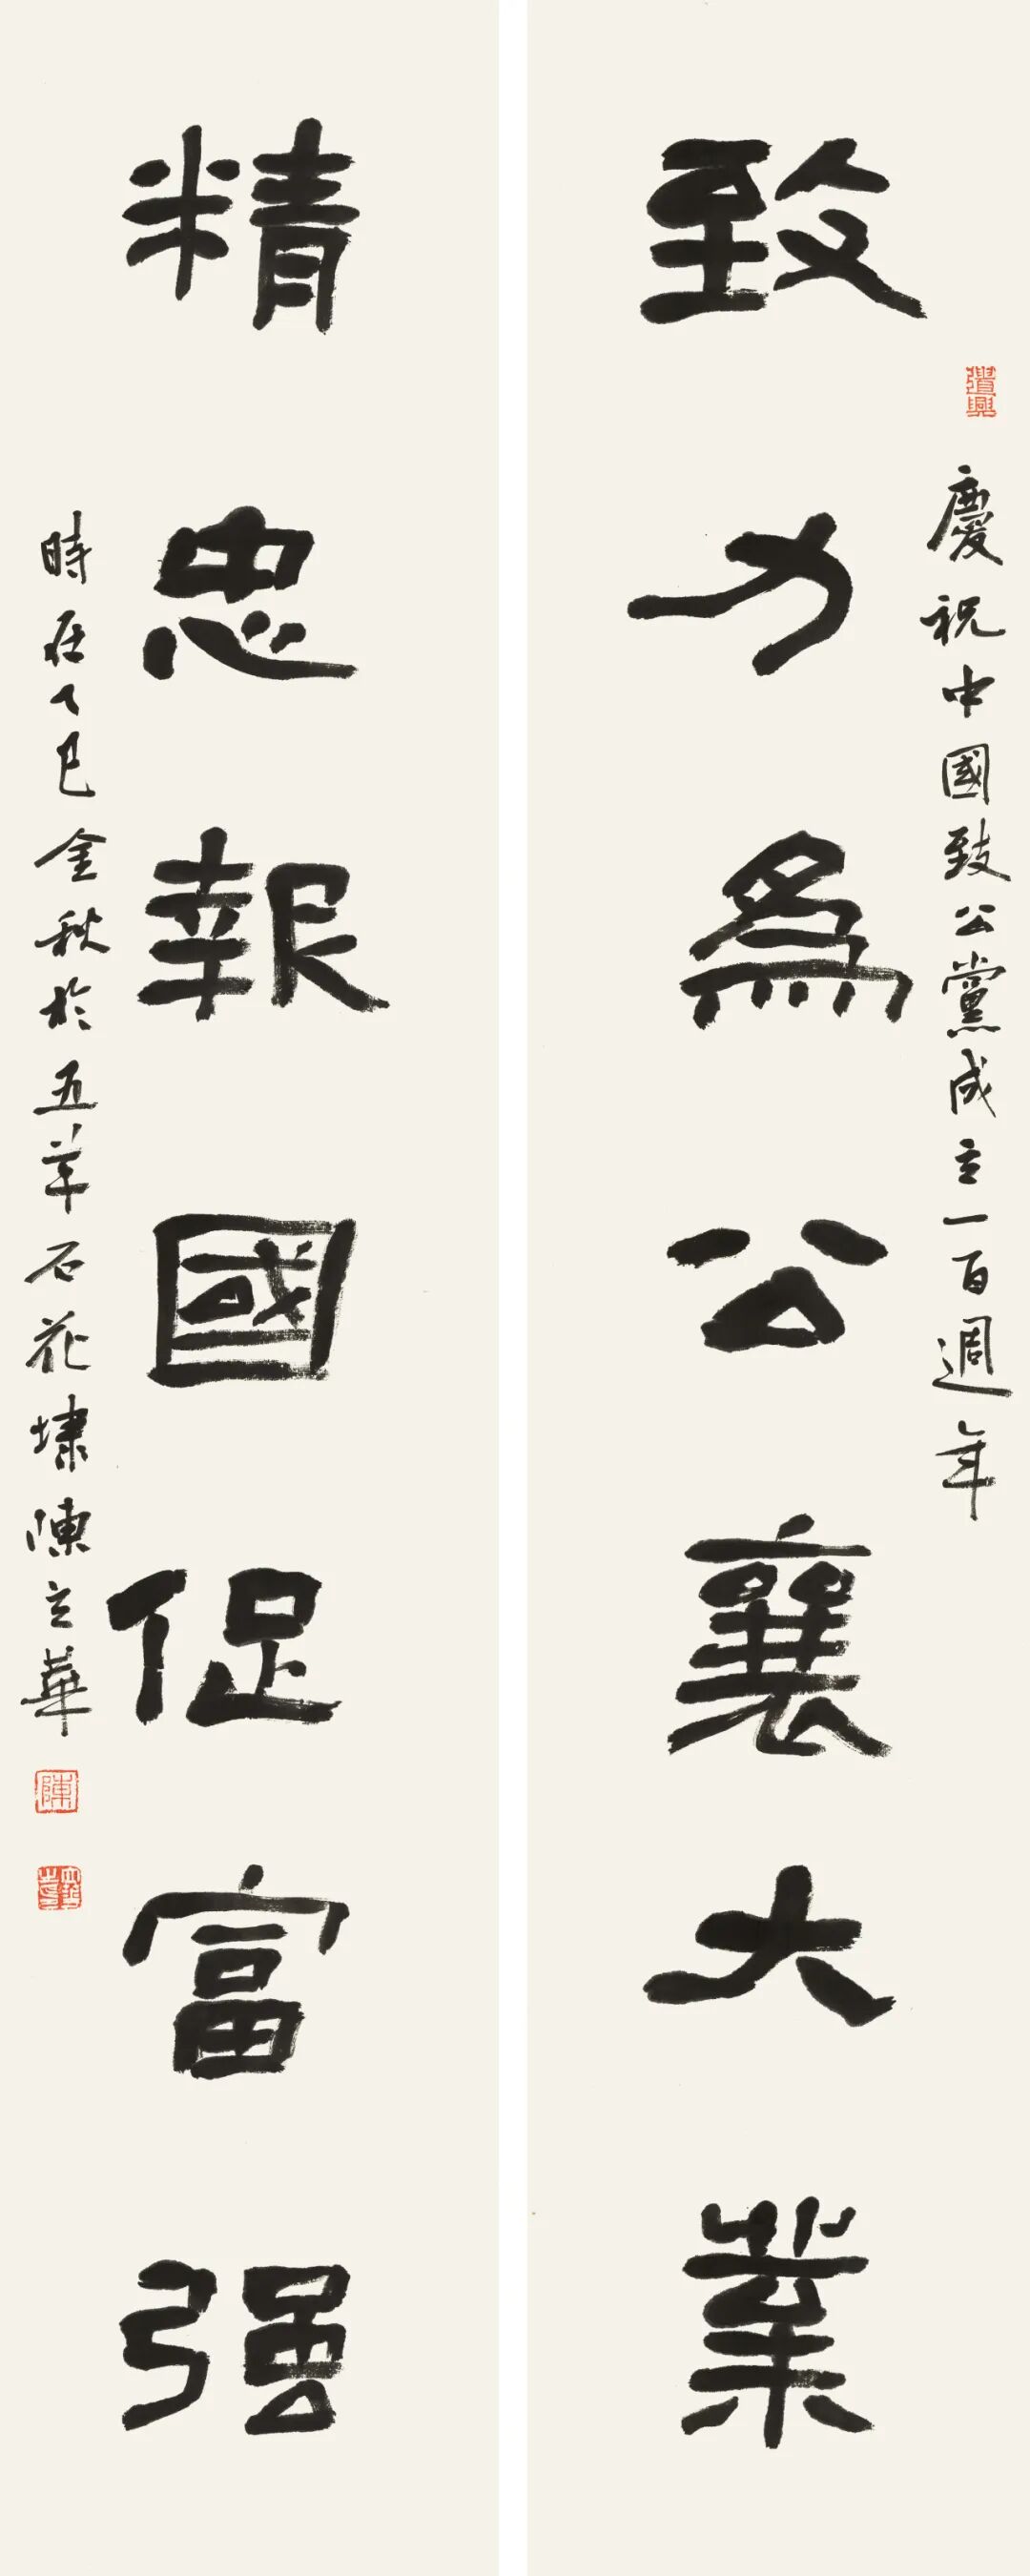 致力為公襄大業
慶祝中國致公黨成立一百週年
精忠報國促富强
時在乙巳金秋於五羊石花埭陳立華
陳